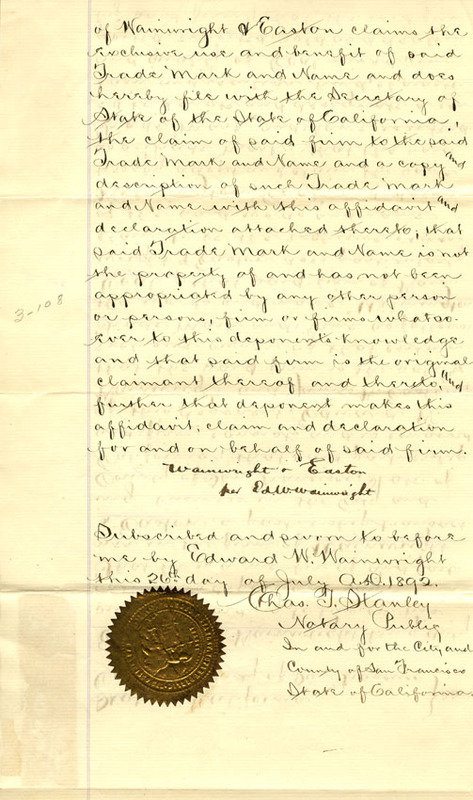 of Wainwright & Easton claims the
exclusive use and benefit of said
Trade Mark and Name and does
hereby file with the Secretary of
State of the State of California,
the claim of said firm to the said
Trade Mark and Name and a copy and
description of such Trade Mark
and Name with this affidavit and
declaration attached thereto; that
said Trade Mark and Name is not
the property of and has not been
appropriated by any other person
or persons, firm or firms whatso-
ever to this deponents knowledge
and that said firm is the original
claimant thereof and thereto, and
further that deponent makes this
affidavit, claim and declaration
for and on behalf of said firm.
Wainwright & Easton
per Ed W. Wainwright
3-108
Subscribed and sworn to before
me by Edward W. Wainwright
this 26th day of July A.D. 1892.
Chas. T. Stanley
Notary Public
In and for the City and
County of San Francisco
State of California